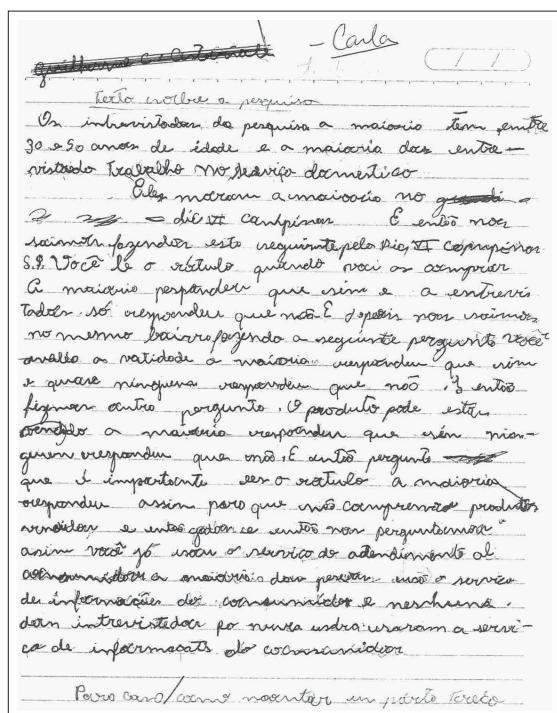 - Carla
Texto sobre a pesquisa
Os intrevistadas da pesquisa a maioria tem entre
30 e 50 anos de idade e a maioria das entre-
vistado Trabalho no serviço domestico
Eles moram a maioria no
dic VI campinas E então nos
saimos fazendos esta seguinte pelo Dic VI Campinas
S.P. Você le o rótulo quando vai as comprar
A maioria respondeu que sim e a entrevis
tados só respondeu que não E depois nos saimos
no mesmo bairro fazendo a seguinte pergunta você
avalia a validade a maioria respondeu que sim
e quase ninguem respondeu que não. E então
fizemos outra pergunta. O produto pode estar
vencido a maioria respondeu que sim nin-
guem respondeu que não. E então pergunte
que é importante ler o rótulo a maioria
respondeu assim para que não compremos produtos
vencidos e então nos perguntamos
asim você já usou o serviço de atendimento al
consumidor a maioria das pessoas usa o serviço
de informações do consumidor e
dos intrevistados nunca usaram a servi-
ço de informacoes do consumidor
Para casa/como montar um